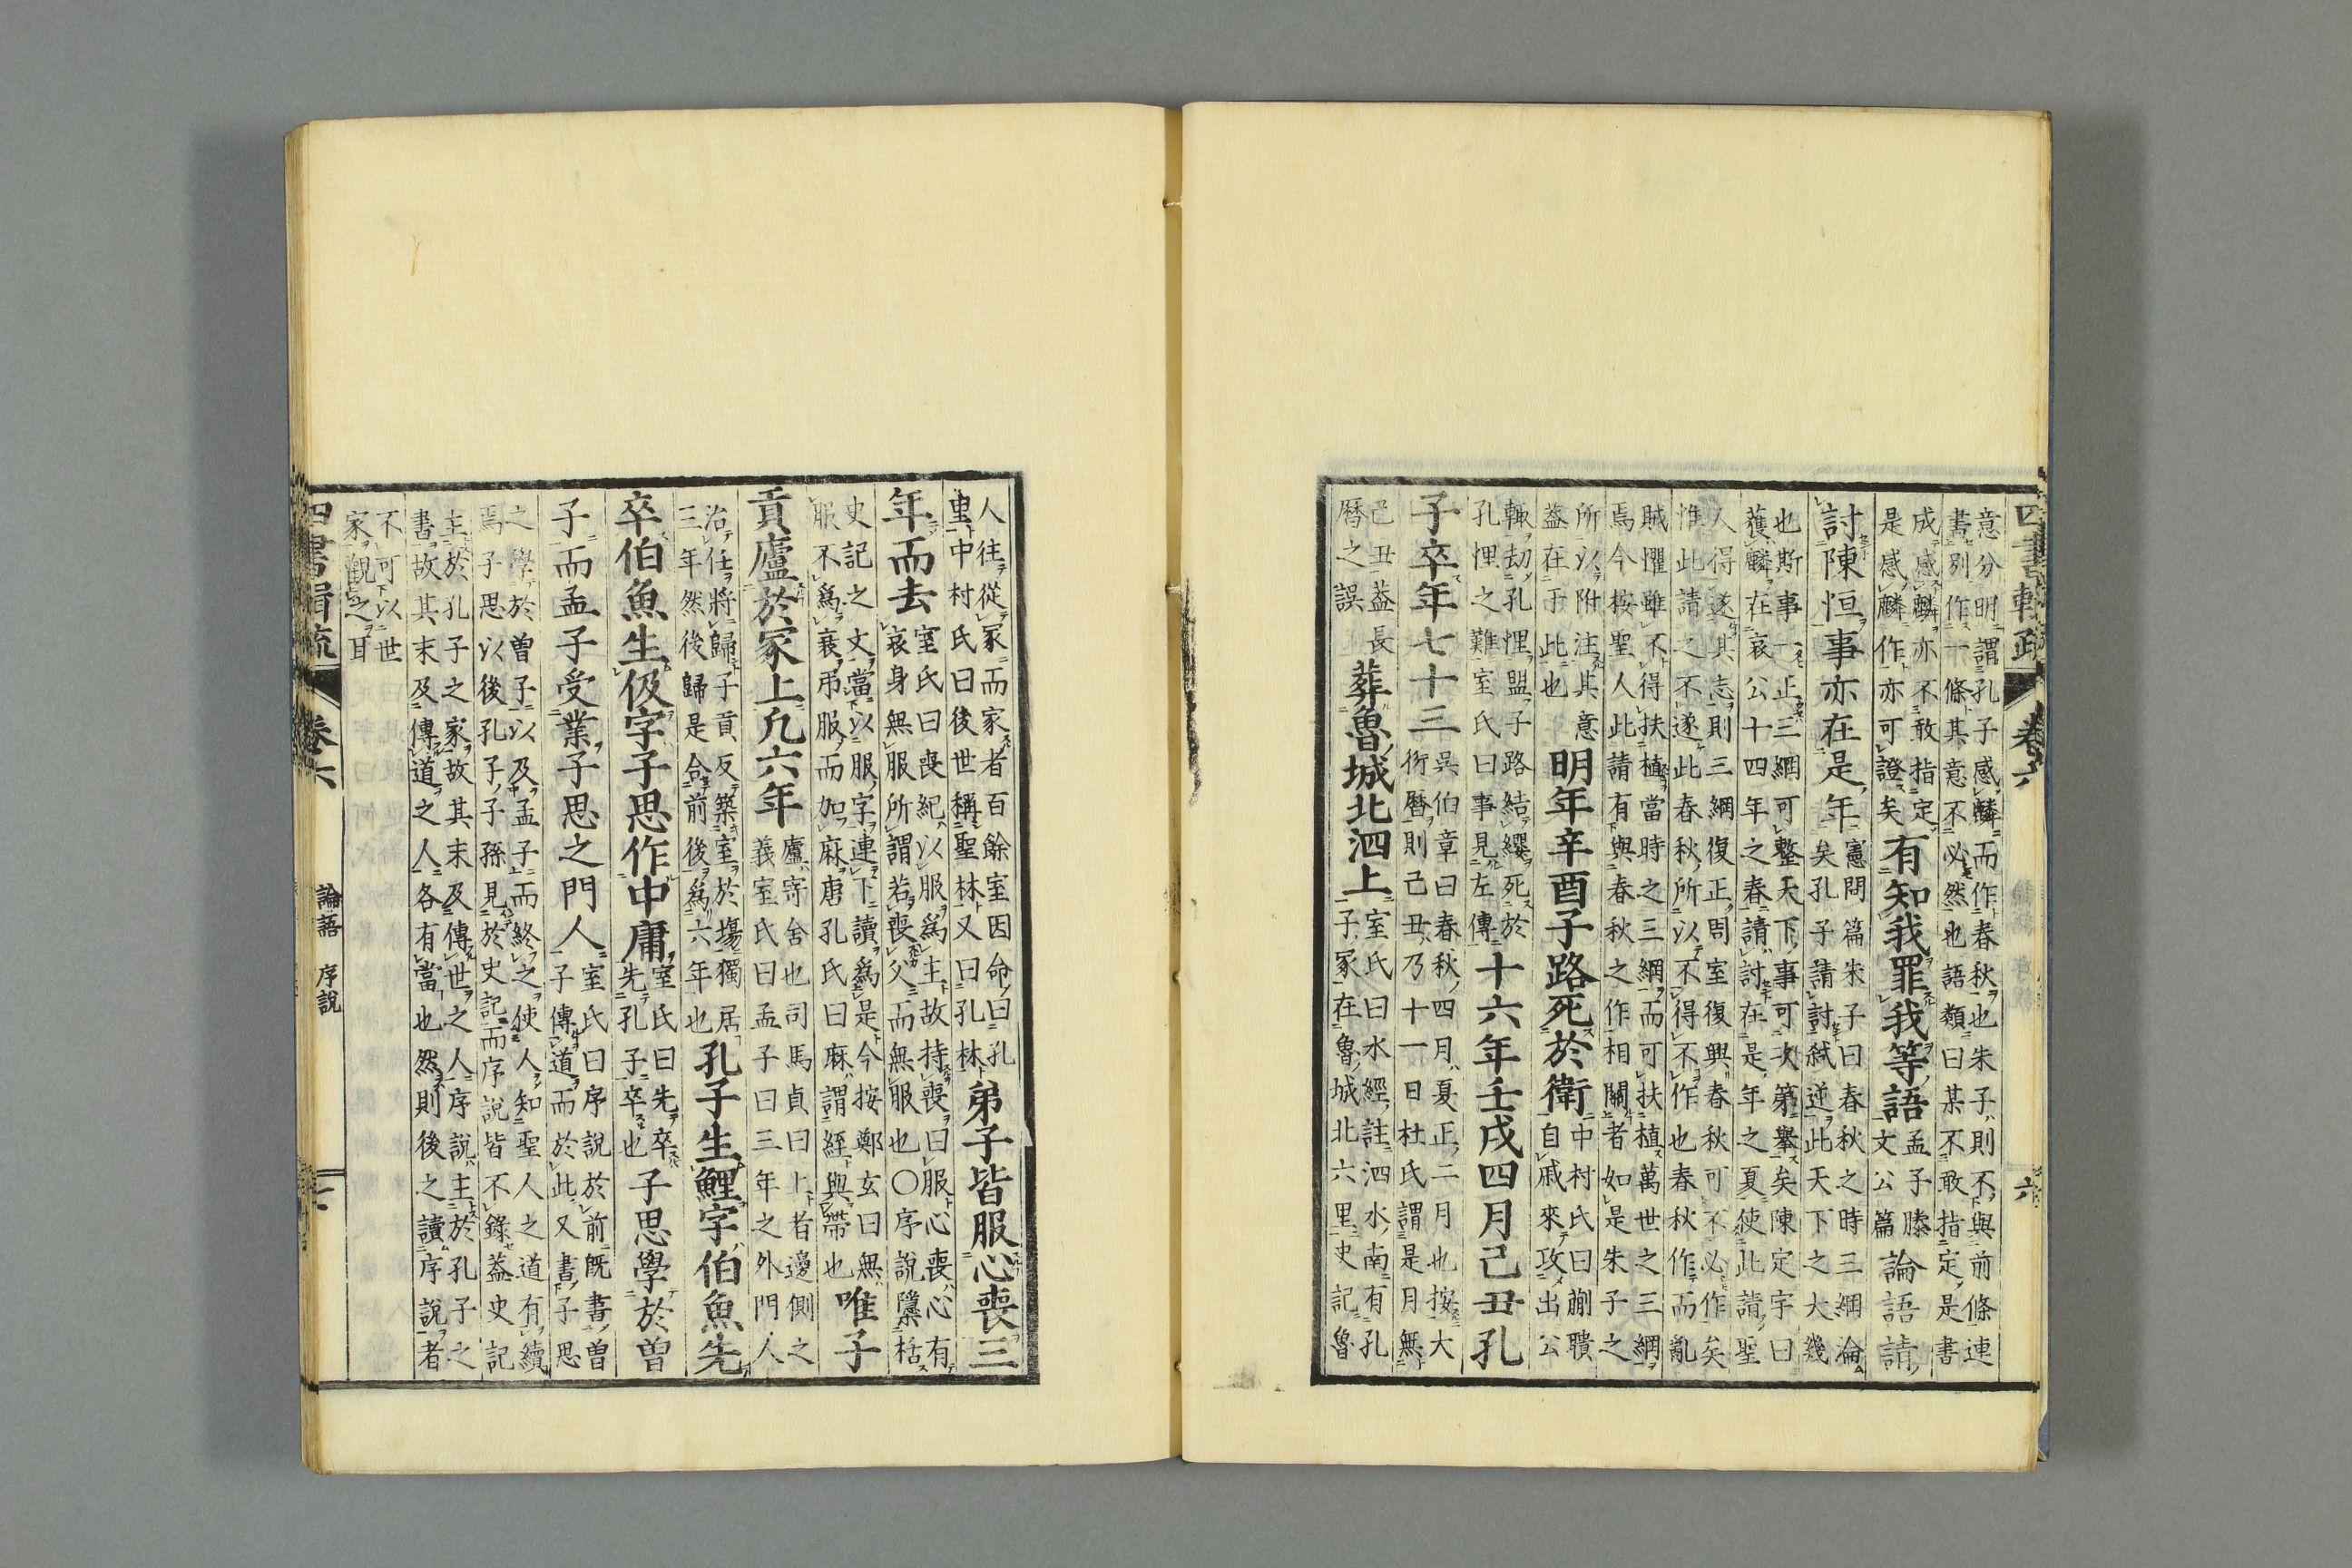 四書輯疏 卷六 六
意分明謂孔子感麟而作春秋也朱子則不與前條連
書別作一條其意不必然也語類曰某不敢指定是書
成感麟亦不敢指定
是感麟作亦可證矣有知我罪我等語孟子滕
文公篇論語請
討陳恒事亦在是年憲問篇朱子曰春秋之時三綱淪
矣孔子請討弑逆此天下之大幾
也斯事一正三綱可整天下事可次第舉矣陳定宇曰
獲麟在哀公十四年之春請討在是年之夏使此請聖
人得遂其志則三綱復正周室復興春秋可不必作矣
惟此請之不遂此春秋所以不得不作也春秋作而亂
賊懼雖不得扶植當時之三綱而可扶植萬世之三綱
焉今按聖人此請有與春秋之作相關者如是朱子之
所以附注其意
蓋在于此也明年辛酉子路死於衛中村氏曰蒯聵
自戚來攻出公
輒劫孔悝盟子路結纓死於
孔悝之難室氏曰事見左傳十六年壬戌四月己丑孔
子卒年七十三吳伯章曰春秋四月夏正二月也按大
衍曆則己丑乃十一日杜氏謂是月無
己丑蓋長
曆之誤葬魯城北泗上室氏曰水經註泗水南有孔
子冢在魯城北六里史記魯
人往從冢而家者百餘室因命曰孔
里中村氏曰後世稱聖林又曰孔林弟子皆服心喪三
年而去室氏曰喪紀以服爲主故持喪曰服心喪心有
哀身無服所謂若喪父而無服也〇序說檃栝
史記之文當以服字連下讀爲是今按鄭玄曰無
服不爲衰弔服而加麻唐孔氏曰麻謂絰與帶也唯子
貢廬於冢上凡六年廬寄舍也司馬貞曰上者邊側之
義室氏曰孟子曰三年之外門人
治任將歸子貢反築室於場獨居
三年然後歸是合前後爲六年也孔子生鯉字伯魚先
卒伯魚生伋字子思作中庸室氏曰先卒
先孔子卒也子思學於曾
子而孟子受業子思之門人室氏曰序說於前既書曾
子傳道而於此又書子思
之學於曾子以及孟子而終之使人知聖人之道有續
焉子思以後孔子子孫見於史記而序說皆不錄蓋史記
主於孔子之家故其末及傳世之人序說主於孔子之
書故其末及傳道之人各有當也然則後之讀序說者
不可以世
家觀之耳
四書輯疏 卷六 論語 序說 七